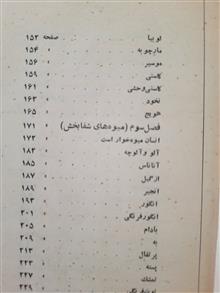 لوبیا صفحه ۱۵۲
مارچوبه » ۱۵۴
موسیر » ۱۵۶
کاسنی » ۱۵۹
کاسنی وحشی » ۱۶۱
نخود » ۱۶۳
هویج » ۱۶۵
فصل سوم (میوه‌های شفابخش) » ۱۷۱
انسان میوه‌خوار است » ۱۷۲
آلو و آلوچه » ۱۸۲
آناناس » ۱۸۵
ازگیل » ۱۸۷
انجیر » ۱۸۹
انگور » ۱۹۳
انگورفرنگی » ۲۰۱
بادام » ۲۰۵
به » ۲۰۹
پرتقال » ۲۱۳
پسته » ۲۲۳
تمشک » ۲۲۷
توت‌فرنگی » ۲۲۹